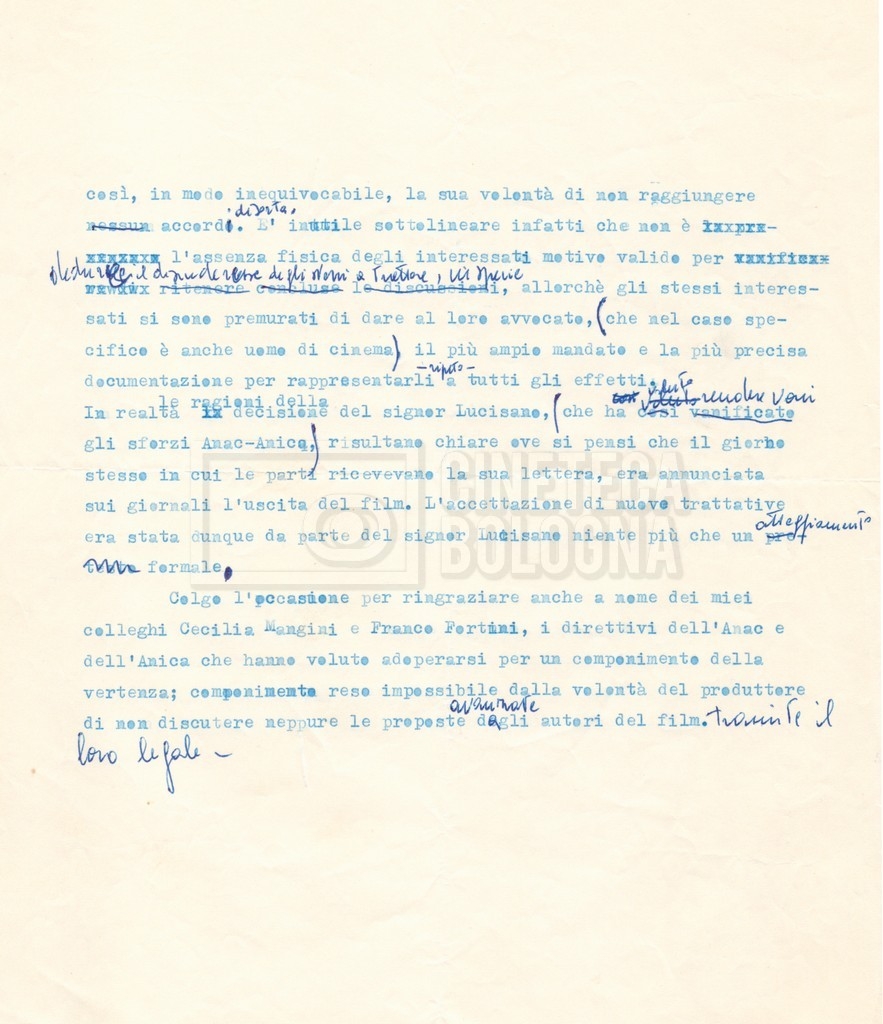 così, in modo inequivocabile, la sua volontà di non raggiungere
nessun accordo. E' inutile sottolineare infatti che non è
l'assenza fisica degli interessati motivo valido per
degli stessi a trattare,
ritenere concluse le discussioni, allorchè gli stessi interes-
sati si sono premurati di dare al loro avvocato, (che nel caso spe-
cifico è anche uomo di cinema) il più ampio mandato e la più precisa
- ripeto -
documentazione per rappresentarli a tutti gli effetti.
le ragioni della
voluto rendere vani
In realtà decisione del signor Lucisano, (che ha così vanificato
gli sforzi Anac-Anica,) risultano chiare ove si pensi che il giorno
stesso in cui le parti ricevevano la sua lettera, era annunciata
sui giornali l'uscita del film. L'accettazione di nuove trattative
atteggiamento
era stata dunque da parte del signor Lucisano niente più che un
formale.
Colgo l'occasione per ringraziare anche a nome dei miei
colleghi Cecilia Mangini e Franco Fortini, i direttivi dell'Anac e
dell'Anica che hanno voluto adoperarsi per un componimento della
vertenza; componimento reso impossibile dalla volontà del produttore
avanzate
di non discutere neppure le proposte dagli autori del film. tramite il
loro legale -
CINETECA
BOLOGNA